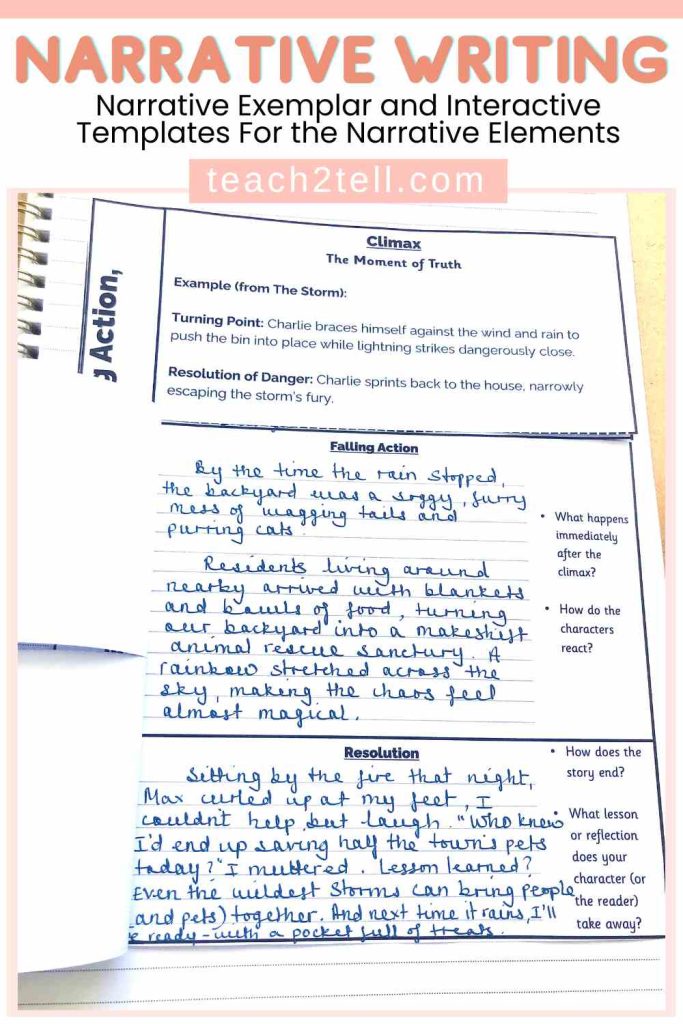 NARRATIVE WRITING
Narrative Exemplar and Interactive
Templates For the Narrative Elements
teach2tell.com
g Action,
Climax
The Moment of Truth
Example (from The Storm):
Turning Point: Charlie braces himself against the wind and rain to
push the bin into place while lightning strikes dangerously close.
Resolution of Danger: Charlie sprints back to the house, narrowly
escaping the storm's fury.
Falling Action
By the time the rain stopped,
the backyard was a soggy, furry
mess of wagging tails and
purring cats.
Residents living around
nearby arrived with blankets
and bowls of food, turning
our backyard into a makeshift
animal rescue sanctury. A
rainbow stretched across the
sky, making the chaos feel
almost magical.
• What happens
immediately
after the
climax?
• How do the
characters
react?
Resolution
Sitting by the fire that night,
Max curled up at my feet, I
couldn't help but laugh. "Who knew
I'd end up saving half the town's pets
today?" I muttered. Lesson learned?
Even the wildest storms can bring people
(and pets) together. And next time it rains, I'll
e ready - with a pocket full of treats.
• How does the
story end?
• What lesson
or reflection
does your
character (or
the reader)
take away?